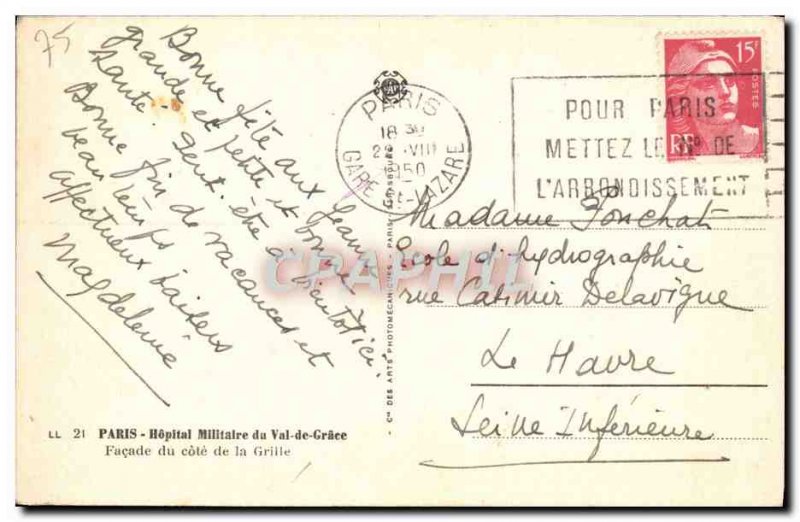 75
Bonne fête aux Jeanne
grande et petite et bonne
santé. Peut-être à bientôt ici.
Bonne fin de vacances et
beau temps
affectueux baisers
Magdeleine
PARIS
18 30
2 VIII
1950
GARE ST-LAZARE
15F
POSTES
RF
POUR PARIS
METTEZ LE N° DE
L'ARRONDISSEMENT
Madame Ponchat
École d'hydrographie
rue Casimir Delavigne
Le Havre
Seine Inférieure
CPAPHIL
Cie DES ARTS PHOTOMÉCANIQUES - PARIS
LL 21 PARIS - Hôpital Militaire du Val-de-Grâce
Façade du côté de la Grille